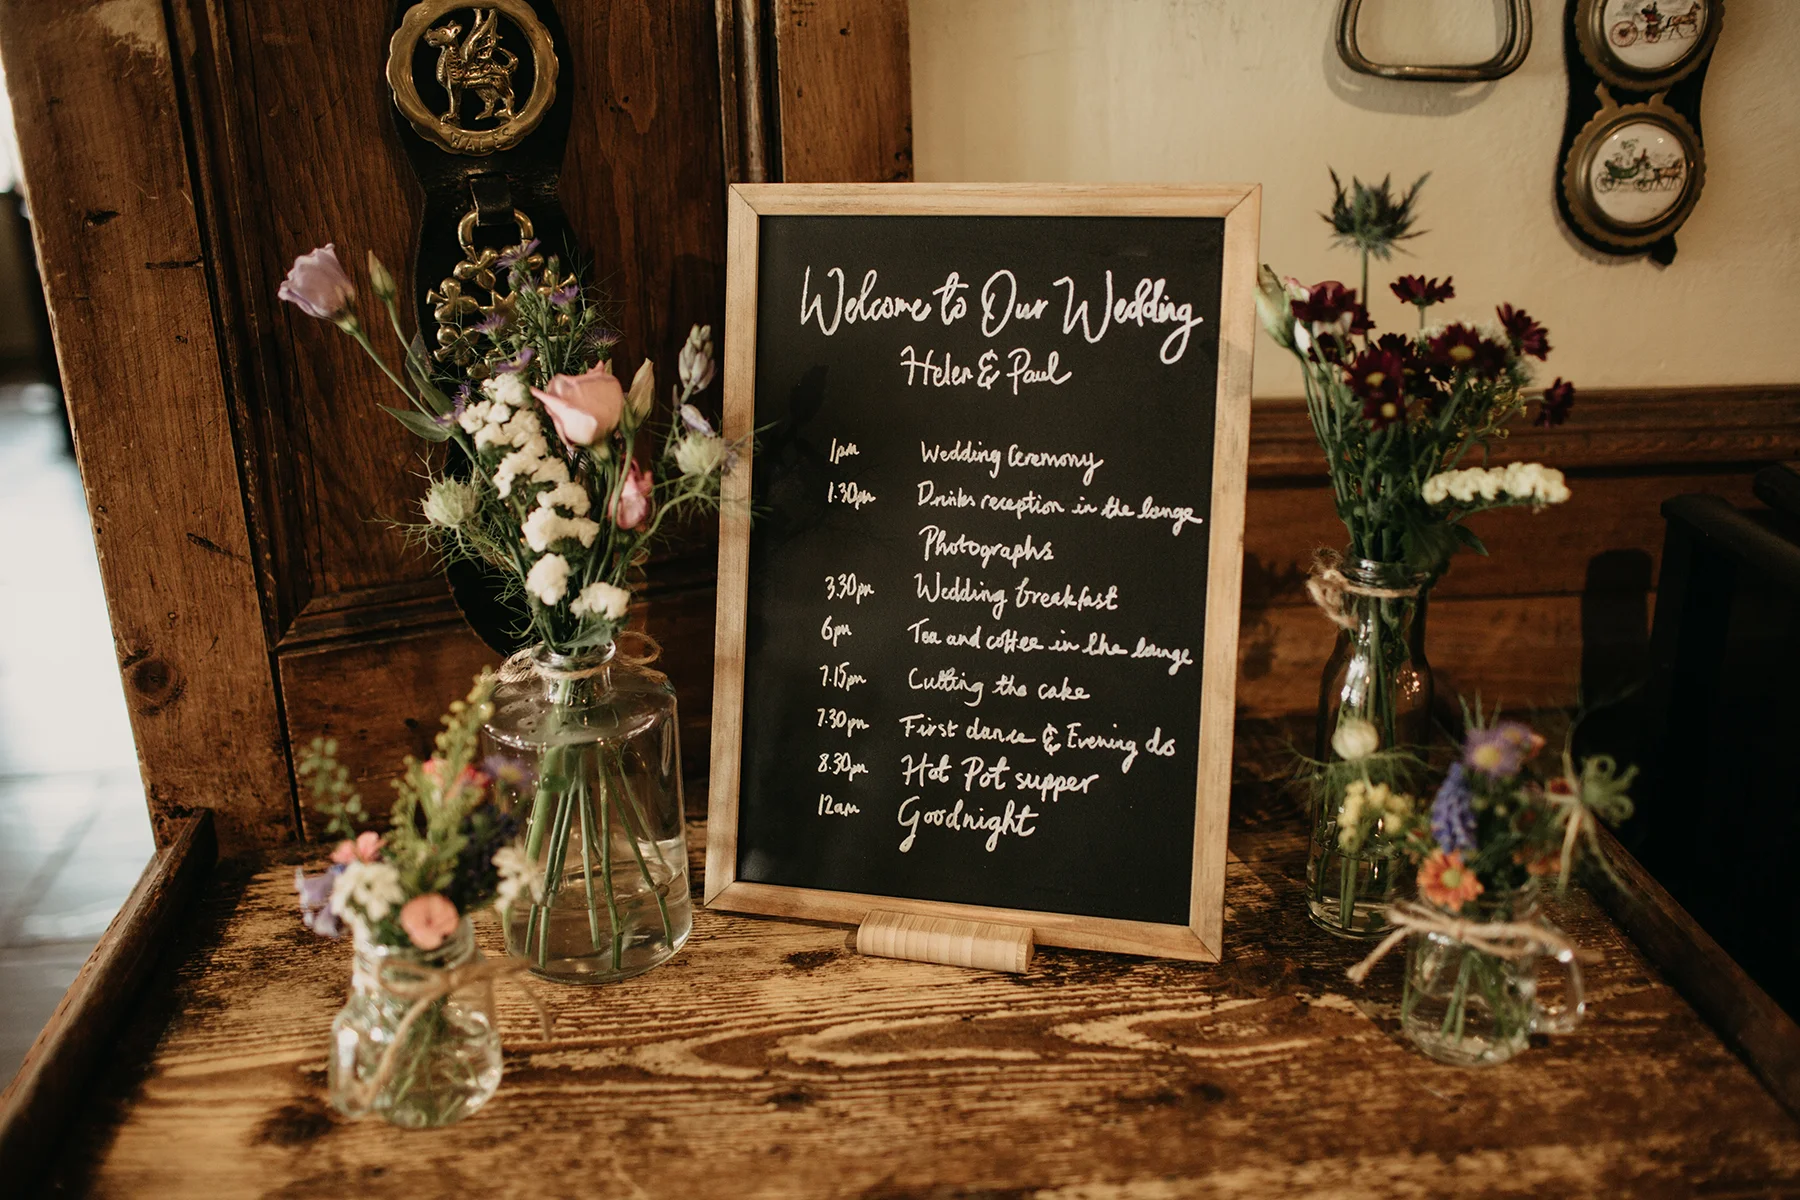 WALES
Welcome to Our Wedding
Helen & Paul
1pm Wedding Ceremony
1.30pm Drinks reception in the lounge
Photographs
3.30pm Wedding breakfast
6pm Tea and coffee in the lounge
7.15pm Cutting the cake
7.30pm First dance & Evening do
8.30pm Hot Pot supper
12am Goodnight